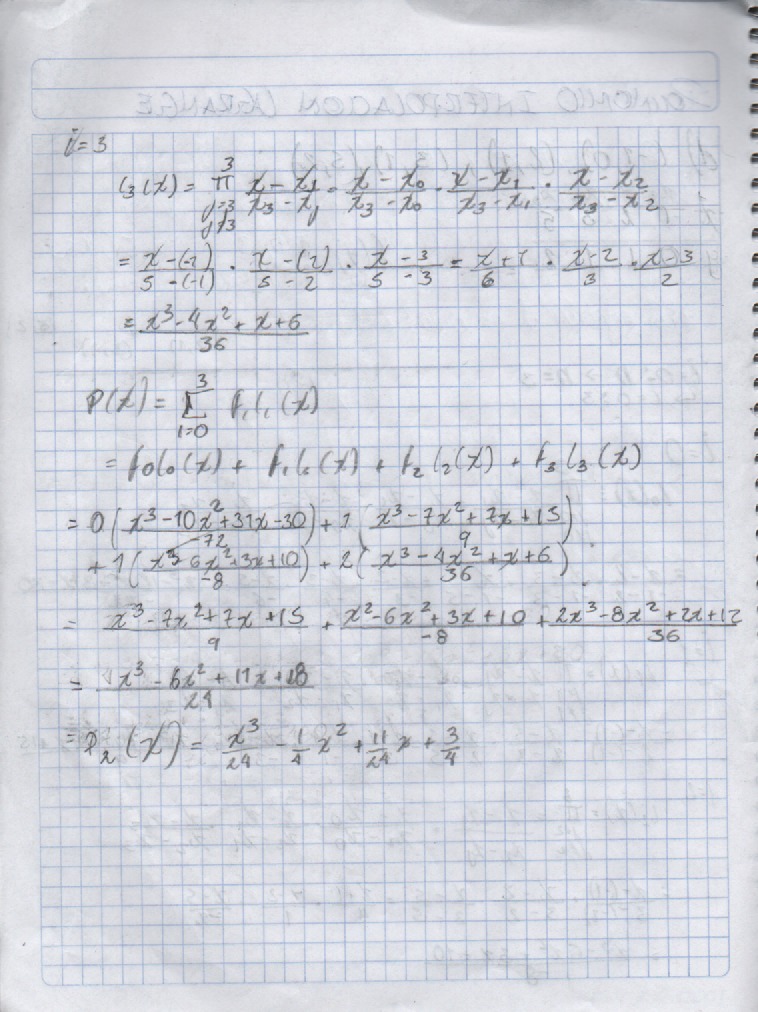 i=3
l₃(x) = 3 π j=3 j≠3 x - xj / x₃ - xj = x - x₀ / x₃ - x₀ · x - x₁ / x₃ - x₁ · x - x₂ / x₃ - x₂
= x-(-1) / 5-(-1) · x-(2) / 5-2 · x-3 / 5-3 = x+1 / 6 · x-2 / 3 · x-3 / 2
= x³-4x²+x+6 / 36
P(x) = 3 Σ i=0 fᵢlᵢ(x)
= f₀l₀(x) + f₁l₁(x) + f₂l₂(x) + f₃l₃(x)
= 0(x³-10x²+31x-30 / -72) + 1(x³-7x²+7x+15 / 9)
+ 1(x³-6x²+3x+10 / -8) + 2(x³-4x²+x+6 / 36)
= x³-7x²+7x+15 / 9 + x²-6x²+3x+10 / -8 + 2x³-8x²+2x+12 / 36
= 1x³-6x²+11x+18 / 24
= P₂(x) = x³/24 - 1/4 x² + 11/24 x + 3/4